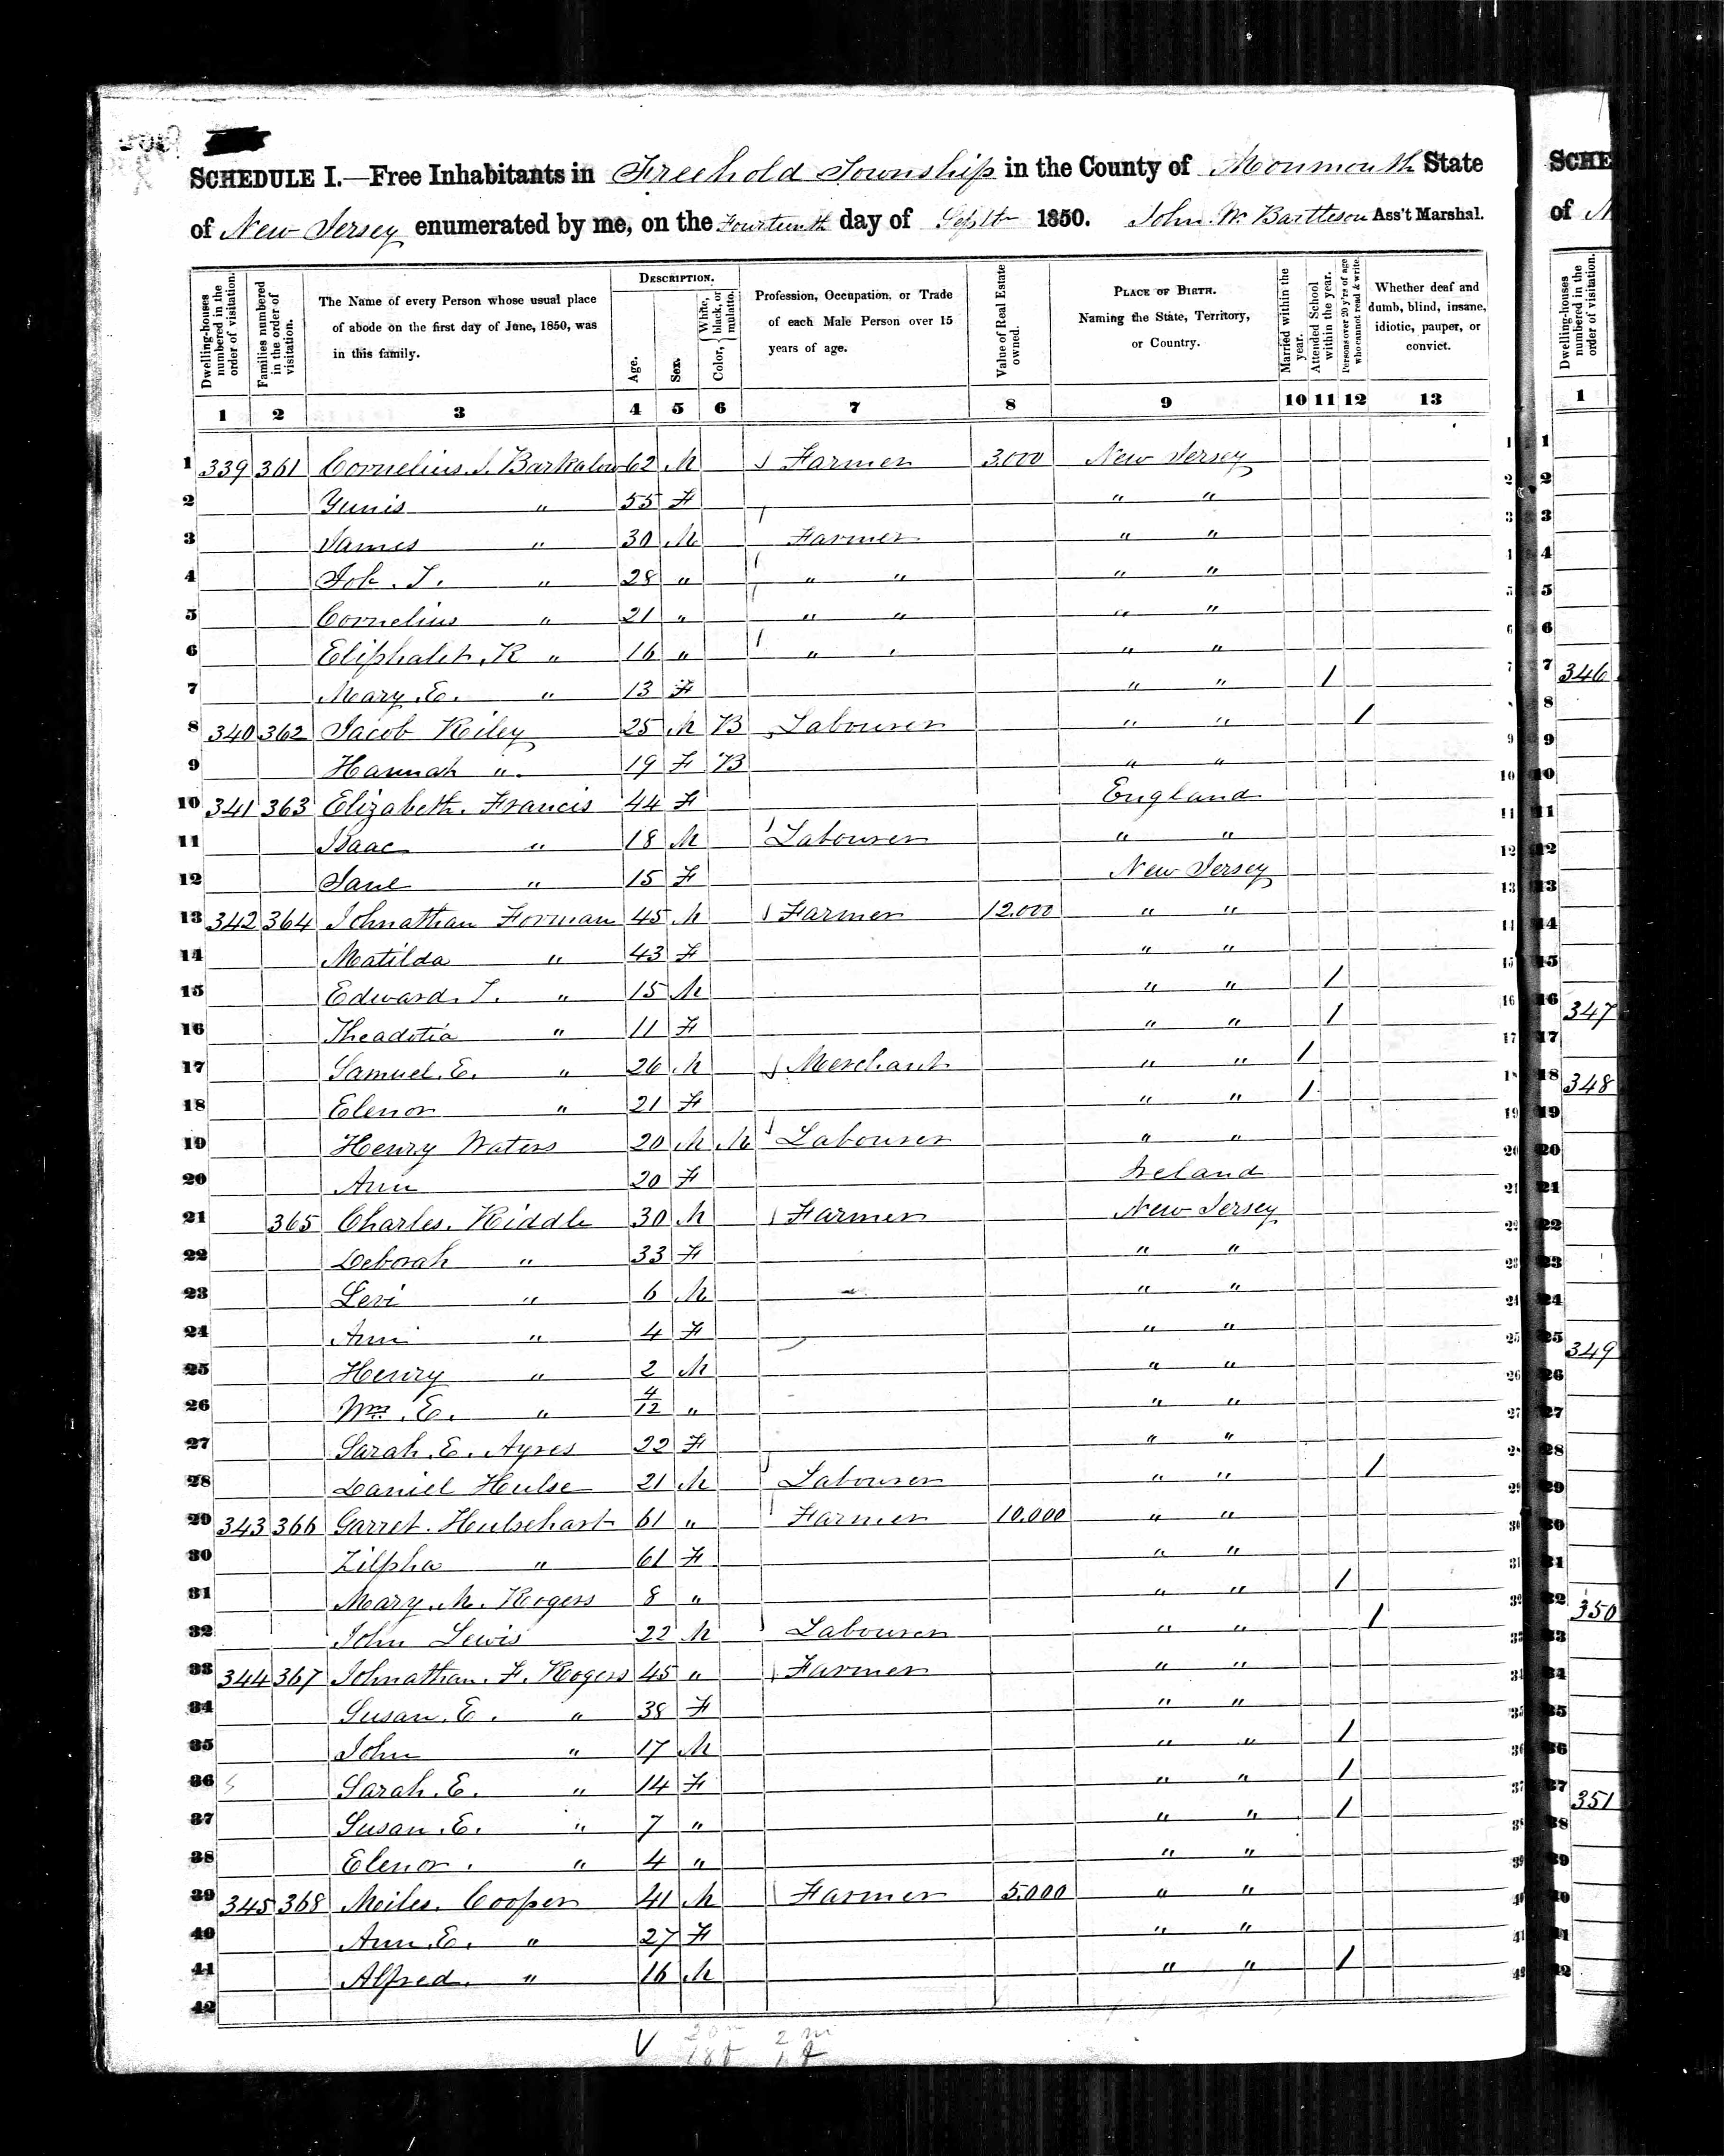 SCHEDULE I.—Free Inhabitants in Freehold Township in the County of Monmouth State
of New Jersey enumerated by me, on the Fourteenth day of Sept 1850. John W. Bartleson Ass't Marshal.
Dwelling-houses numbered in the order of visitation.
Families numbered in the order of visitation.
The Name of every Person whose usual place of abode on the first day of June, 1850, was in this family.
DESCRIPTION.
Age.
Sex.
Color, { White, black, or mulatto.
Profession, Occupation, or Trade of each Male Person over 15 years of age.
Value of Real Estate owned.
PLACE OF BIRTH. Naming the State, Territory, or Country.
Married within the year.
Attended School within the year.
Persons over 20 y'rs of age who cannot read & write.
Whether deaf and dumb, blind, insane, idiotic, pauper, or convict.
1 2 3 4 5 6 7 8 9 10 11 12 13
1 339 361 Cornelius. J. Barkalow 62 M Farmer 3,000 New Jersey 1
2 Yunis " 55 F " " 2
3 James " 30 M Farmer " " 3
4 Job. T. " 28 " " " " "
5 Cornelius " 21 " " " " " 5
6 Eliphalet. R " 16 " " " " " 6
7 Mary. E. " 13 F " " / 7
8 340 362 Jacob Riley 25 M B Labourer " " /
9 Hannah " 19 F B " " 9
10 341 363 Elizabeth. Francis 44 F England 10
11 Isaac " 18 M Labourer " " 11
12 Jane " 15 F New Jersey 12
13 342 364 Johnathan Forman 45 M Farmer 12,000 " " 13
14 Matilda " 43 F " "
15 Edward. T. " 15 M " " / 15
16 Theadotia " 11 F " " / 16
17 Samuel. E. " 26 M Merchant " " / 17
18 Elenor " 21 F " " /
19 Henry Waters 20 M M Labourer " " 19
20 Ann 20 F Ireland 20
21 365 Charles. Riddle 30 M Farmer New Jersey 21
22 Deborah " 33 F " "
23 Levi " 6 M " "
24 Ann " 4 F " " 24
25 Henry " 2 M " " 25
26 Wm. E. " 4/12 " " " 26
27 Sarah. E. Ayres 22 F " " 27
28 Daniel Hulse 21 M Labourer " " /
29 343 366 Garret. Hulsehart 61 " Farmer 10,000 " "
30 Zilpha " 61 F " "
31 Mary. M. Rogers 8 " " " /
32 John Lewis 22 M Labourer " " /
33 344 367 Johnathan. F. Rogers 45 " Farmer " "
34 Susan. E. " 38 F " "
35 John " 17 M " " /
36 Sarah. E. " 14 F " " /
37 Susan. E. " 7 " " " /
38 Elenor. " 4 " " "
39 345 368 Miles. Cooper 41 M Farmer 5,000 " "
40 Ann. E. " 27 F " "
41 Alfred. " 16 M " " /
42
SCHE
of N
Dwelling-houses numbered in the order of visitation.
1
1
2
3
4
5
6
7 346
8
9
10
11
12
13
14
15
16 347
17
18 348
19
20
21
22
23
24
25 349
26
27
28
29
30
31
32 350
33
34
35
36
37 351
38
39
40
41
42